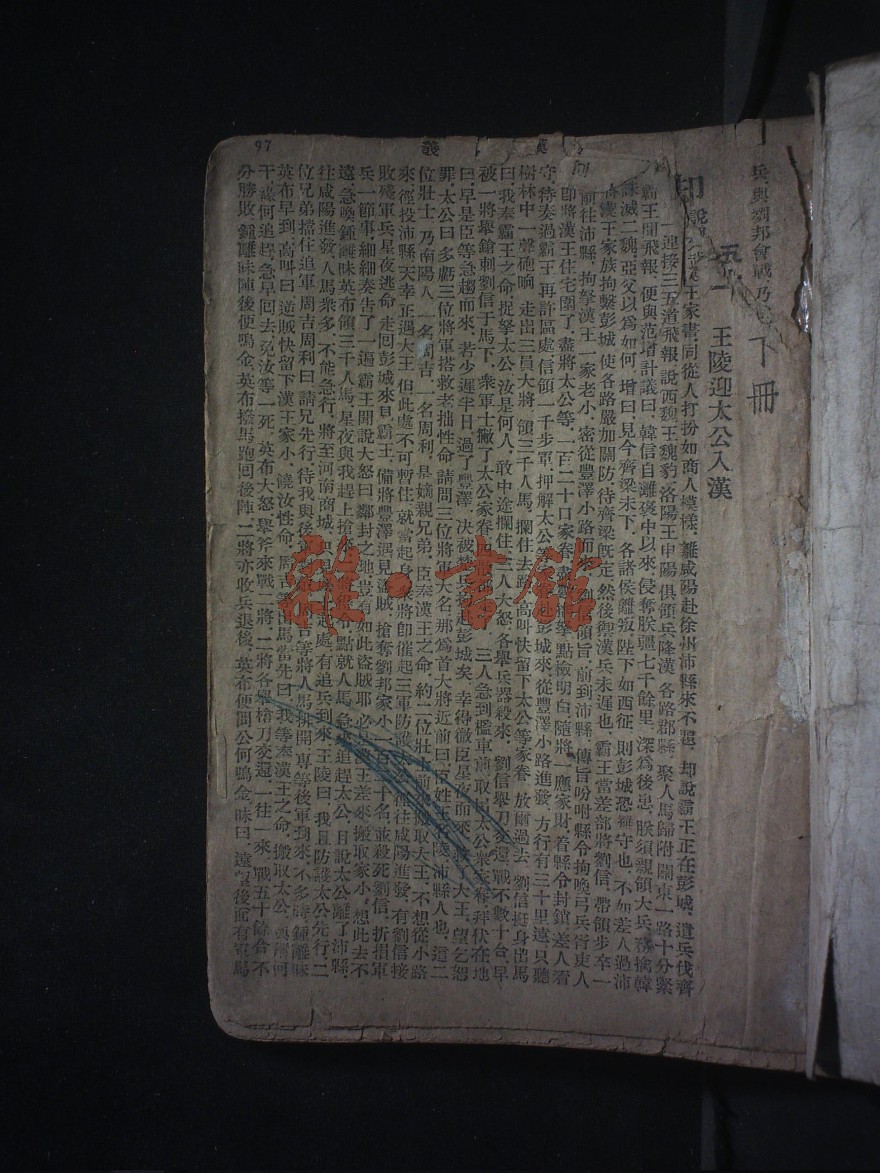 97
義 漢
兵與劉邦會戰乃
下冊
五一 王陵迎太公入漢
却說 漢王家書同從人打扮如商人模樣、離咸陽赴徐州沛縣來不題、却說霸王正在彭城、遣兵伐齊
一連接三五道飛報說西魏王魏豹、洛陽王申陽、俱領兵降漢、各路郡縣、聚人馬歸附關東一路十分緊
霸王聞飛報、便與范增計議曰、韓信自離褒中以來、侵奪朕疆七千餘里、深為後患、朕須親領大兵、務擒韓
誅滅二魏、亞父以為如何、增曰、見今齊梁未下、各諸侯離叛、陛下如西征、則彭城恐難守也、不如差人過沛
將漢王家族拘繫彭城、使各路嚴加關防、待齊梁既定、然後禦漢兵未遲也、霸王當差部將劉信、帶領步卒一
前往沛縣、拘拏漢王一家老小、密從豐澤小路而來、劉信領旨、前到沛縣、傳旨吩咐縣令拘喚弓兵胥吏人
即將漢王住宅圍了、盡將太公等、一百二十口家眷盡 拏、點檢明白、隨將 應家財、着縣令封鎖、差人看
守、待奏過霸王、再討區處、信領一千步軍、押解太公等 彭城來、從豐澤小路進發、方行有三十里遠、只聽
樹林中一聲砲响、走出三員大將、領三千人馬、攔住去路、高叫快留下太公等家眷、放爾過去、劉信挺身出馬
曰我奉霸王之命、捉拏太公、汝是何人、敢中途攔住、三人大怒、各舉兵器殺來、劉信舉刀交還、戰不數十合、早
被一將舉鎗刺劉信于馬下、衆軍士撇了太公家眷四散 三人急到檻車前、取出太公衆家眷、拜伏在地
曰、早是臣等急趨而來、若少遲半日、過了豐澤、決被 赶彭城矣、幸得微臣星夜而來、救了大王、望乞恕
罪、太公曰、多虧三位將軍搭救老拙性命、請問三位將軍大名、那為首大將近前曰、臣姓王名陵、沛縣人也、這二
位壯士、乃南陽人、一名周吉、一名周利、是嫡親兄弟、臣奉漢王之命、約二位壯士前來取大王、不想從小路
來、徑投沛縣、天幸正遇大王、但此處不可暫住、就當起身、衆將即催起三軍、防護太公 徑往咸陽進發、有劉信接
敗殘軍兵、星夜逃命、走回彭城來見霸王、備將豐澤遇見盜賊、搶奪劉邦家小、一百二十名、並殺死劉信、折損軍
兵一節事、細細奏告了一遍、霸王聞說大怒曰、鄰封之地、豈有如此盜賊耶、必是漢王差來搬取家小、想此去不
遠、急喚鍾離昧英布領三千人馬、星夜與我趕上搶來 點就人馬、急來追趕太公、且說太公離了沛縣、
往咸陽進發、人馬衆多、不能急行、將至河南商城、 起處、有追兵到來、王陵曰、我且防護太公先行、二
位兄弟擋住追軍、周吉周利曰、請兄先行、待我與後 等將人馬排開、專等後軍到來、不多時、鍾離昧
英布早到、高叫曰、逆賊快留下漢王家小、饒汝性命、周吉 出馬當先曰、我等奉漢王之命、搬取太公、與爾何
干、緣何追趕、急早回去、免汝等一死、英布大怒、舉斧來戰二將、二將各舉搶刀交還、一往一來、戰五十餘合、不
分勝敗、鍾離昧陣後便鳴金、英布撥馬跑回後陣、二將亦收兵退後、英布便問公何鳴金、昧曰、遠望後面有軍馬
雜·書館